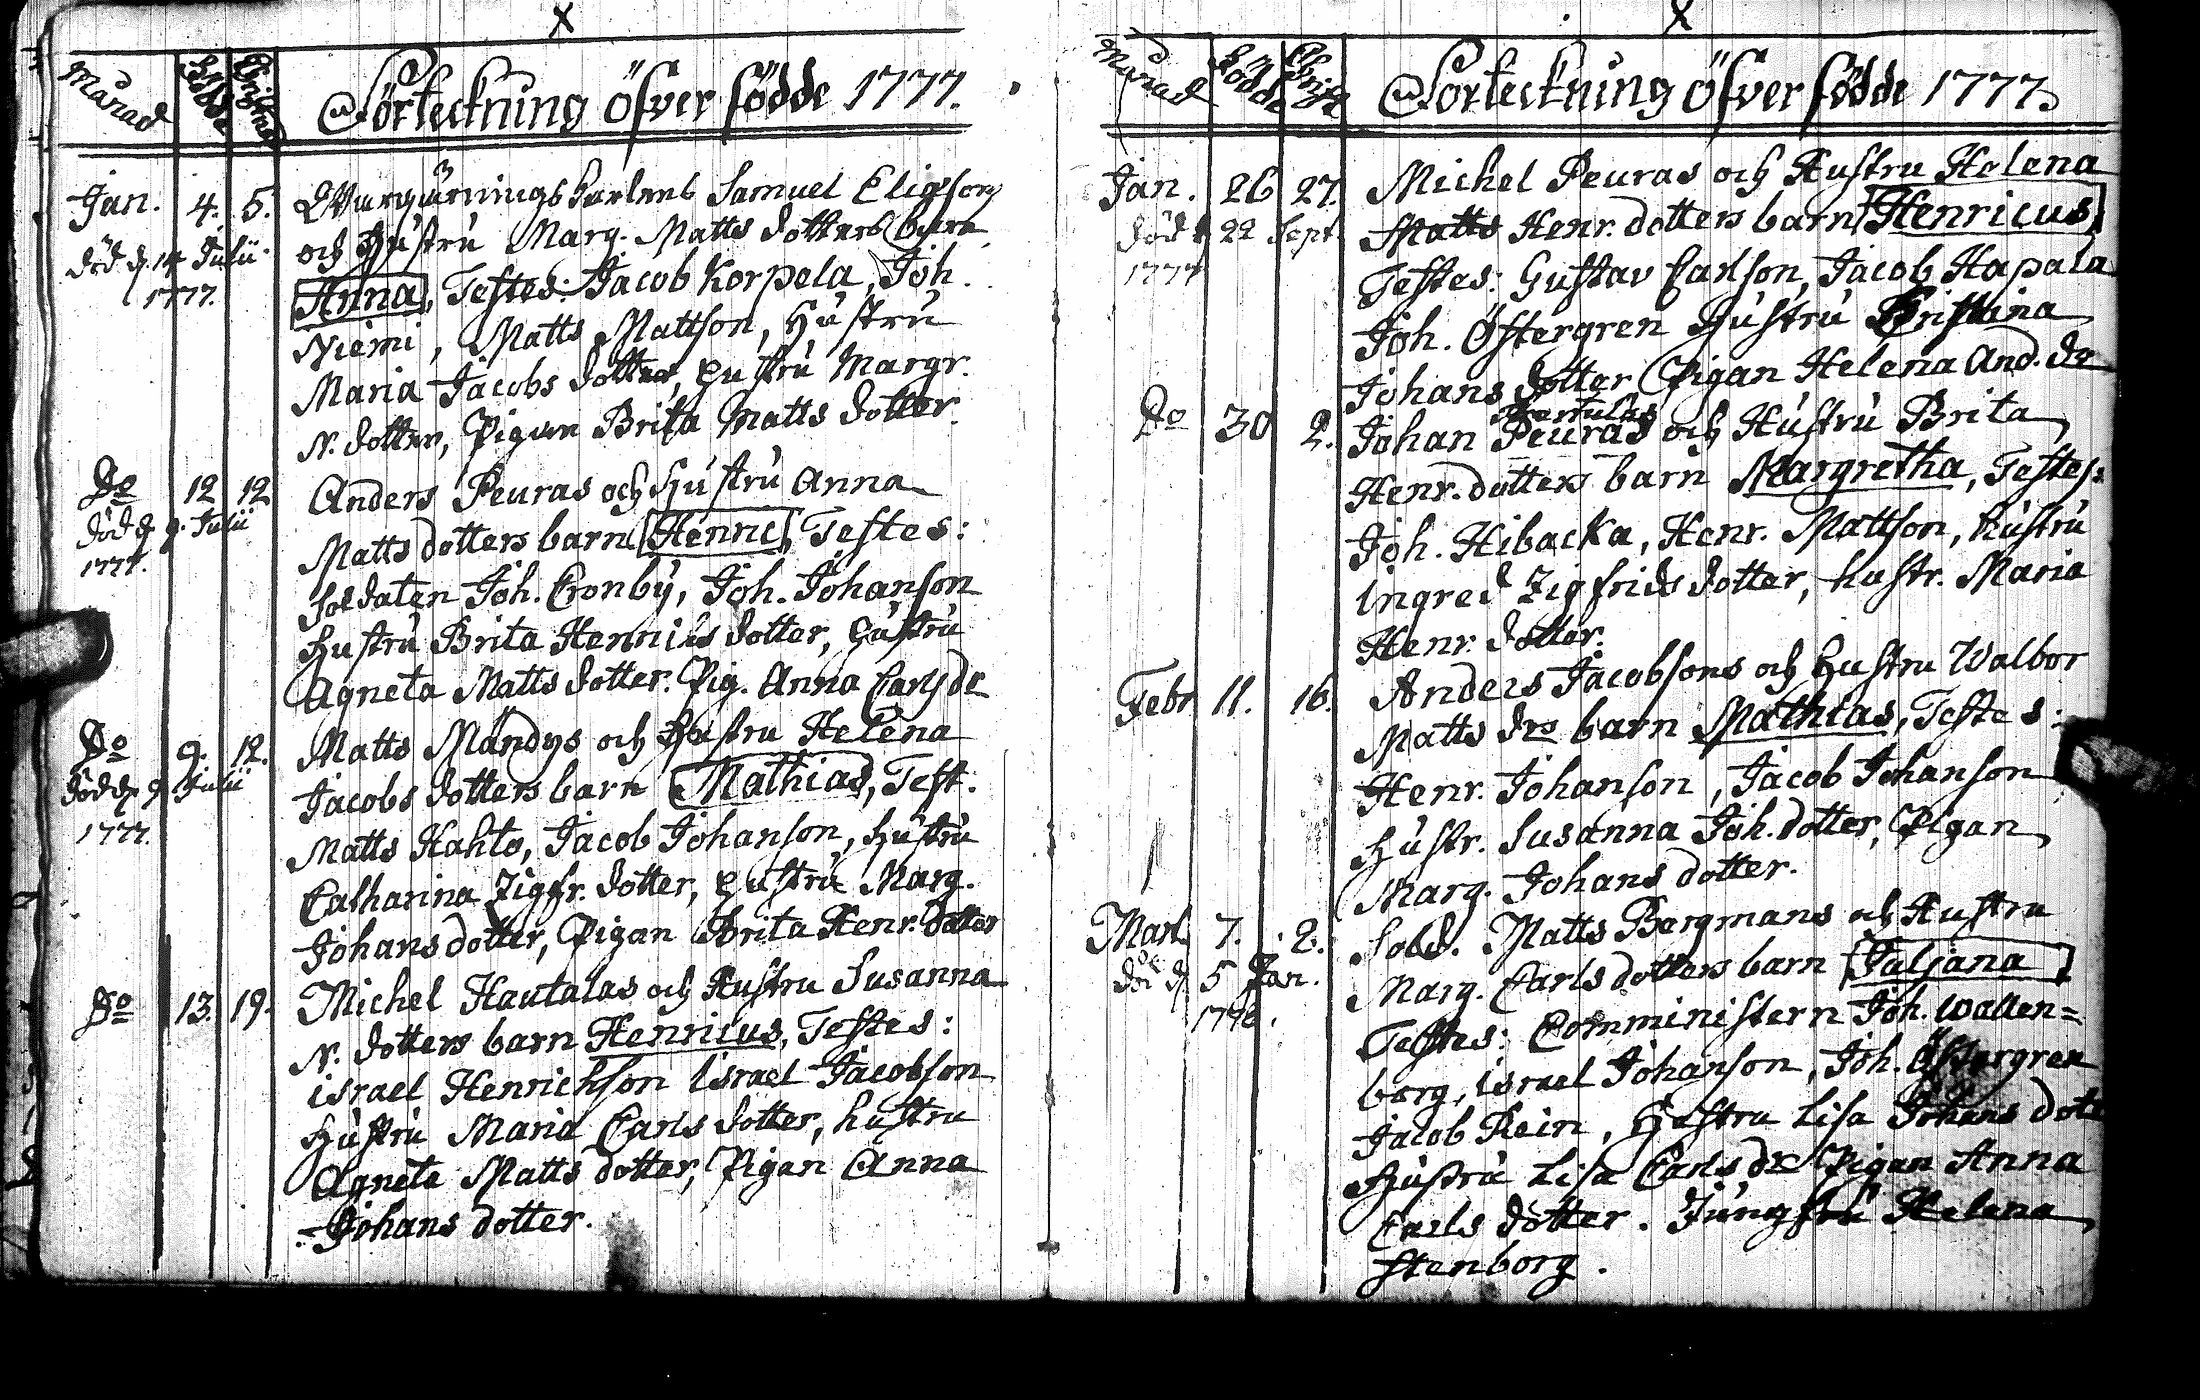 X
Månad Födde Christne Förteckning öfver födde 1777.
Jan. 4. 5. Samuel
och Hustru Marg. Matts dotters barn
död d. 14 Julii
1777.
Anna, Testes: Jacob Korpela, Joh.
Niemi, Matts Mattson, Hustru
Maria Jacobs dotter, Hustru Margr.
N. dotter, Pigan Brita Matts dotter.
Do 12 12 Anders Peuras och Hustru Anna
död d. 9. Julii
1777.
Matts dotters barn Henric, Testes:
Soldaten Joh. Cronby, Joh. Johanson
Hustru Brita Henrics dotter, Hustru
Agneta Matts dotter. Pig. Anna Carls dr
Do 9. 12. Matts Mändys och Hustru Helena
död d. 9 Julii
1777.
Jacobs dotters barn Mathias, Test.
Matts Kahto, Jacob Johanson, Hustru
Catharina Zigfr. dotter, Hustru Marg.
Johans dotter, Pigan Brita Henr. dotter
Do 13. 19. Michel Hautalas och Hustru Susanna
N. dotters barn Henricus, Testes:
Israel Henrichson Israel Jacobson
Hustru Maria Carls dotter, hustru
Agneta Matts dotter, Pigan Anna
Johans dotter.
X
Månad Födde Förteckning öfver födde 1777.
Jan. 26 27. Michel Peuras och Hustru Helena
död d 22 Sept.
1777
Matts Henr. dotters barn Henricus
Testes: Gustav Carlson, Jacob Hapala
Joh. Östergren Hustru Kristina
Johans dotter Pigan Helena And. dr
Do 30 2. Johan Peuras och Hustru Brita
Henr. dotters barn Margretha, Testes:
Joh. Hibacka, Henr. Mattson, hustru
Ingred Zigfrids dotter, hustr. Maria
Henr. dotter.
Febr 11. 16. Anders Jacobsons och Hustru Walbor
Matts drs barn Mathias, Testes:
Henr. Johanson, Jacob Johanson
Hustr. Susanna Joh. dotter, Pigan
Marg. Johans dotter.
Mart. 7. 2. Sold. Matts Bergmans och Hustru
död d 5 Jan.
Marg. Carls dotters barn Juljana
Testes: Comministern Joh. Wallen=
borg, Israel Johanson, Joh. Östergren
Jacob Rein, Hustru Lisa Johans dott
Hustru Lisa Carls dr Pigan Anna
Carls dotter. Jungfru Helena
Stenborg.